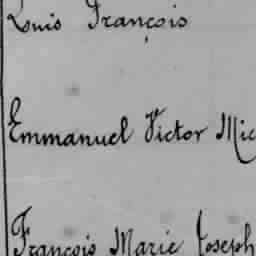 Louis François
Emmanuel Victor Mic
François Marie Joseph